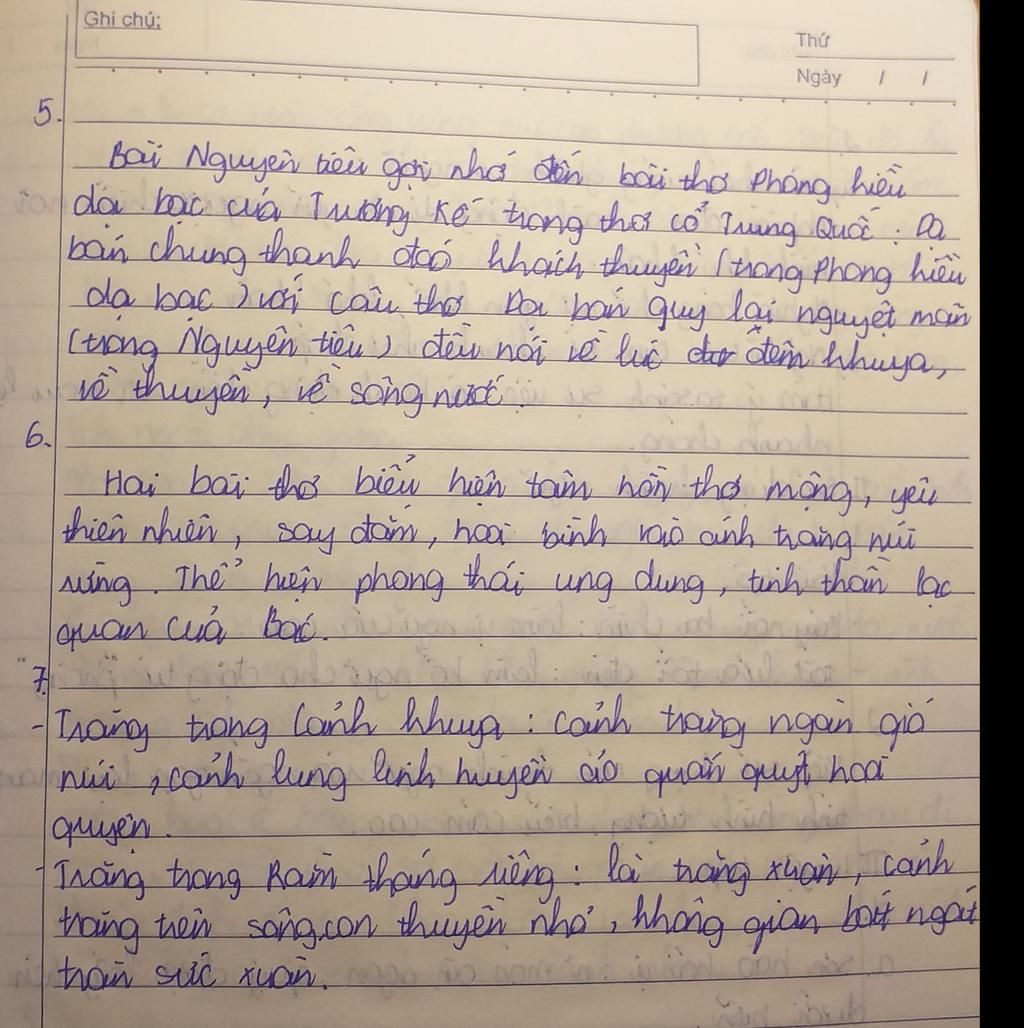 Ghi chú:
Thứ
Ngày / /
5.
Bài Nguyên tiêu gợi nhớ đến bài thơ Phong kiều
dạ bạc của Trương Kế trong thơ cổ Trung Quốc: Dạ
bán chung thanh đáo khách thuyền (trong Phong kiều
dạ bạc) với câu thơ Dạ bán quy lai nguyệt mãn
(trong Nguyên tiêu) đều nói về lúc đêm khuya,
về thuyền, về sông nước.
6.
Hai bài thơ biểu hiện tâm hồn thơ mộng, yêu
thiên nhiên, say đắm, hòa bình vào ánh trăng núi
rừng. Thể hiện phong thái ung dung, tinh thần lạc
quan của Bác.
7.
- Trăng trong Cảnh khuya: cảnh trăng ngàn gió
núi, cảnh lung linh huyền ảo quấn quýt hòa
quyện.
- Trăng trong Rằm tháng riêng: là trăng xuân, cảnh
trăng trên sông, con thuyền nhỏ, không gian bát ngát
tràn sức xuân.